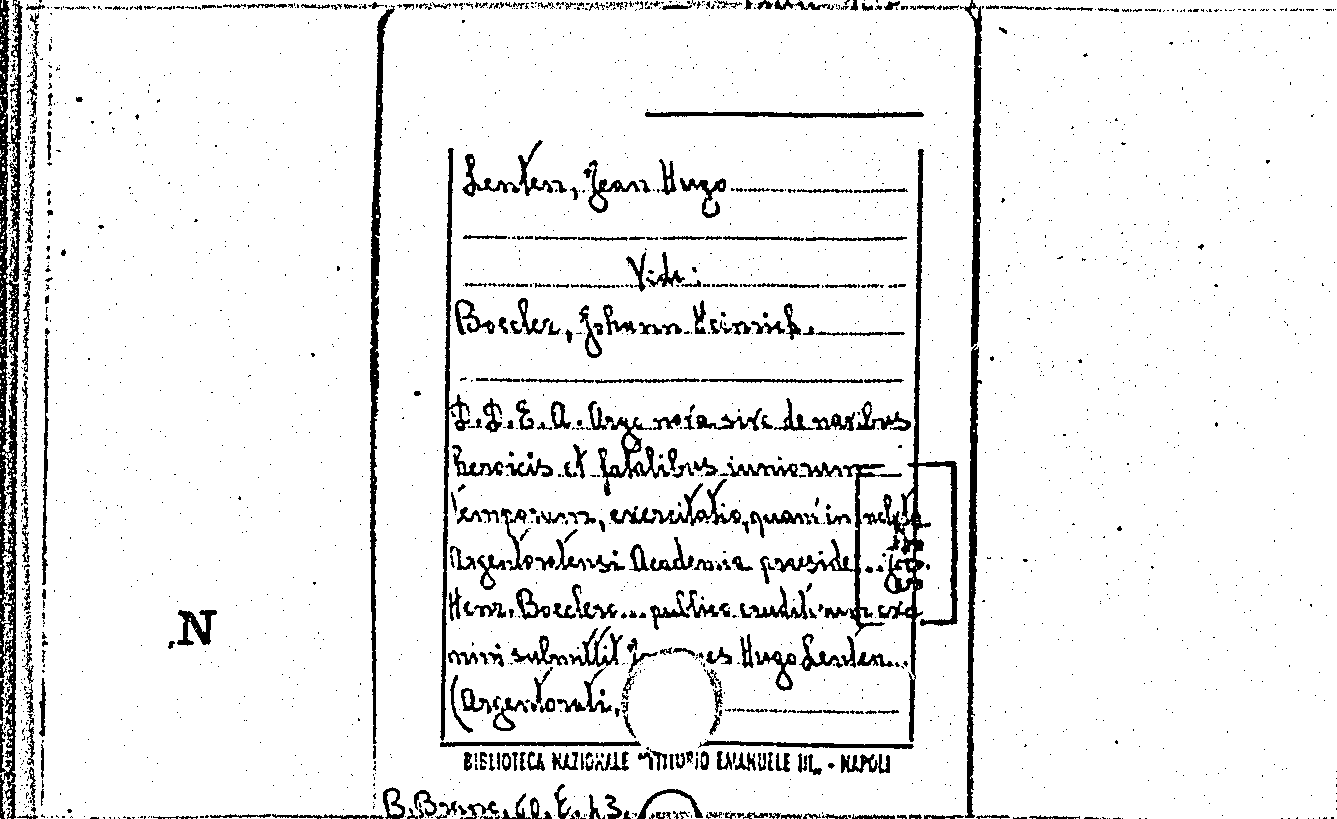 Lenten, Jean Hugo
Vide:
Boecler, Johann Heinrich.
D.D.E.A. Argo nova sive de navibus
heroicis et fatalibus iuniorum
temporum, exercitatio, quam in inclyta
Argentoratensi Academia praeside...
Henr. Boeclero... publico eruditorum exa
mini submittit Hugo Lenten...
(Argentorati,
BIBLIOTECA NAZIONALE "VITTORIO EMANUELE III" - NAPOLI
N
B. Branc. 60. E. 43.